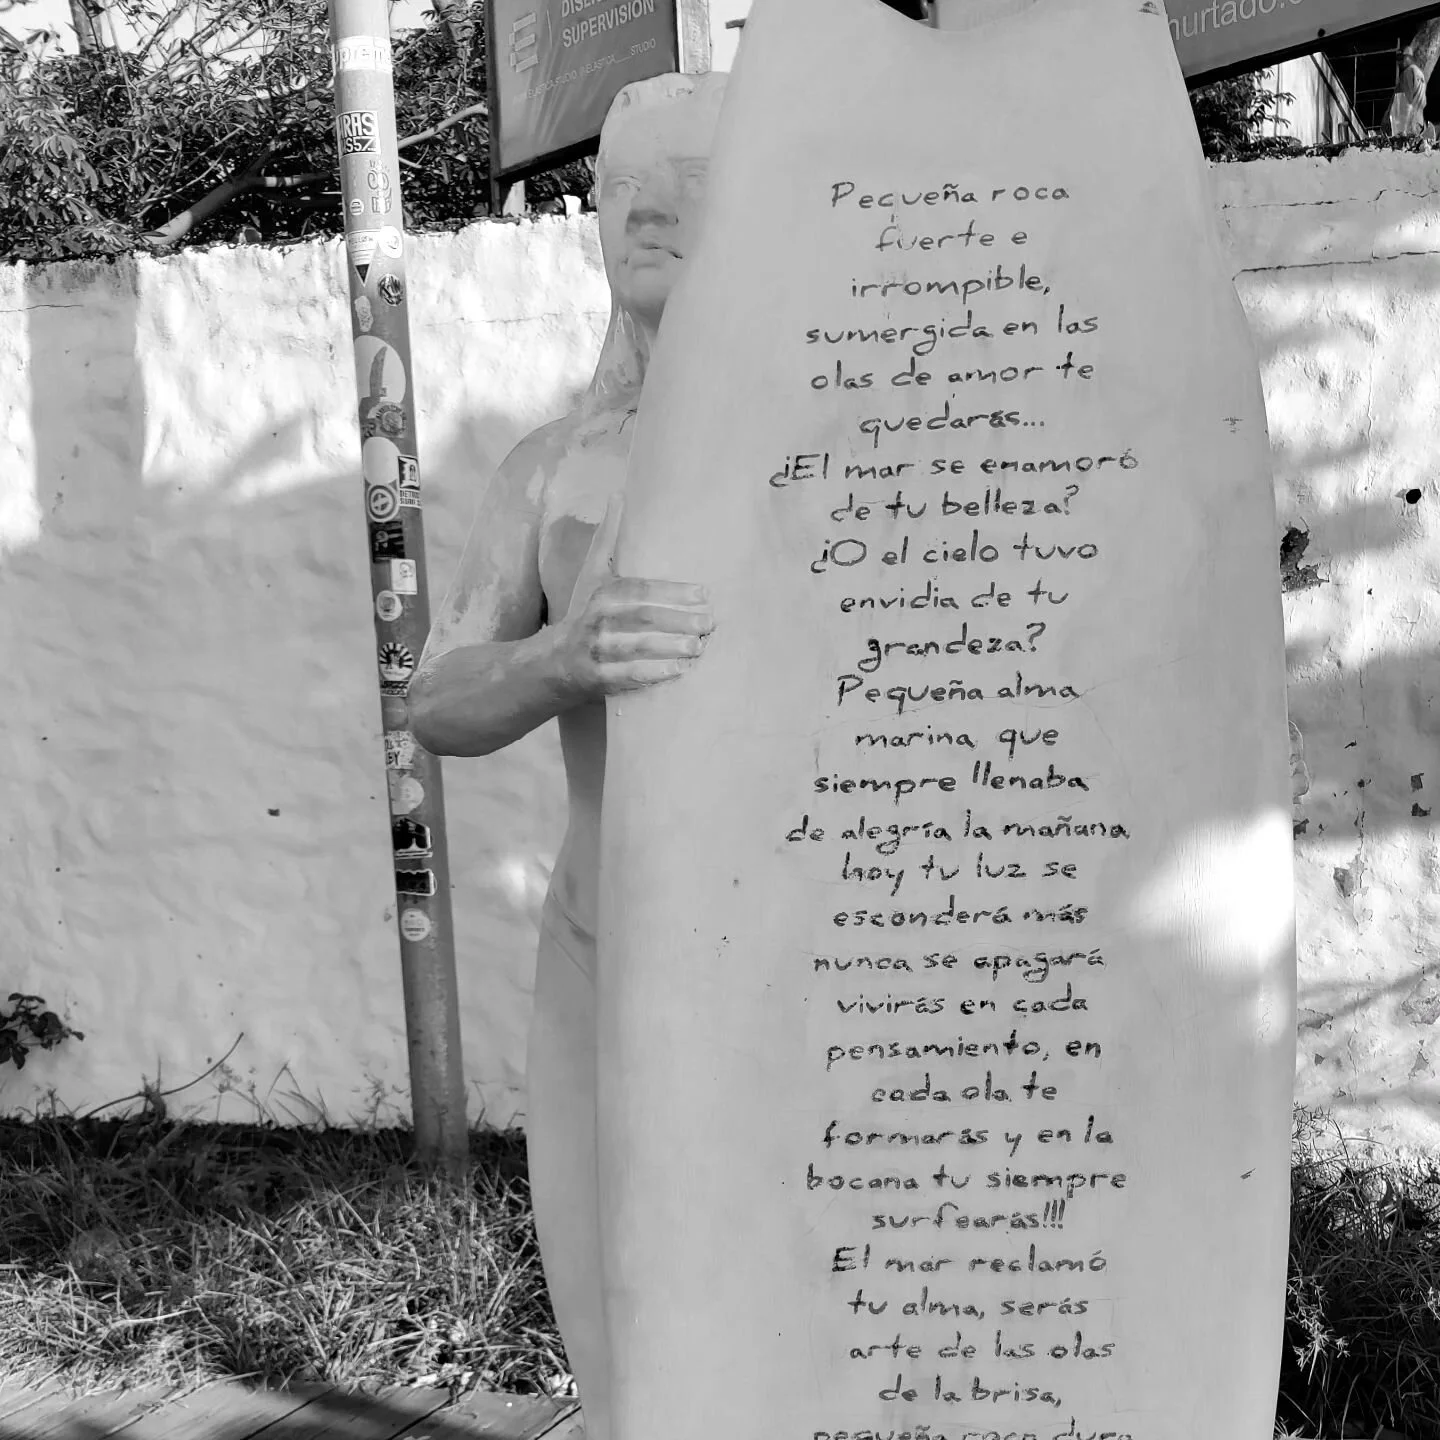 SUPERVISIÓN
hurtado.c
Pequeña roca
fuerte e
irrompible,
sumergida en las
olas de amor te
quedarás...
¿El mar se enamoró
de tu belleza?
¿O el cielo tuvo
envidia de tu
grandeza?
Pequeña alma
marina que
siempre llenaba
de alegría la mañana
hoy tu luz se
esconderá más
nunca se apagará
vivirás en cada
pensamiento, en
cada ola te
formarás y en la
bocana tu siempre
surfearás!!!
El mar reclamó
tu alma, serás
arte de las olas
de la brisa,
pequeña roca dura